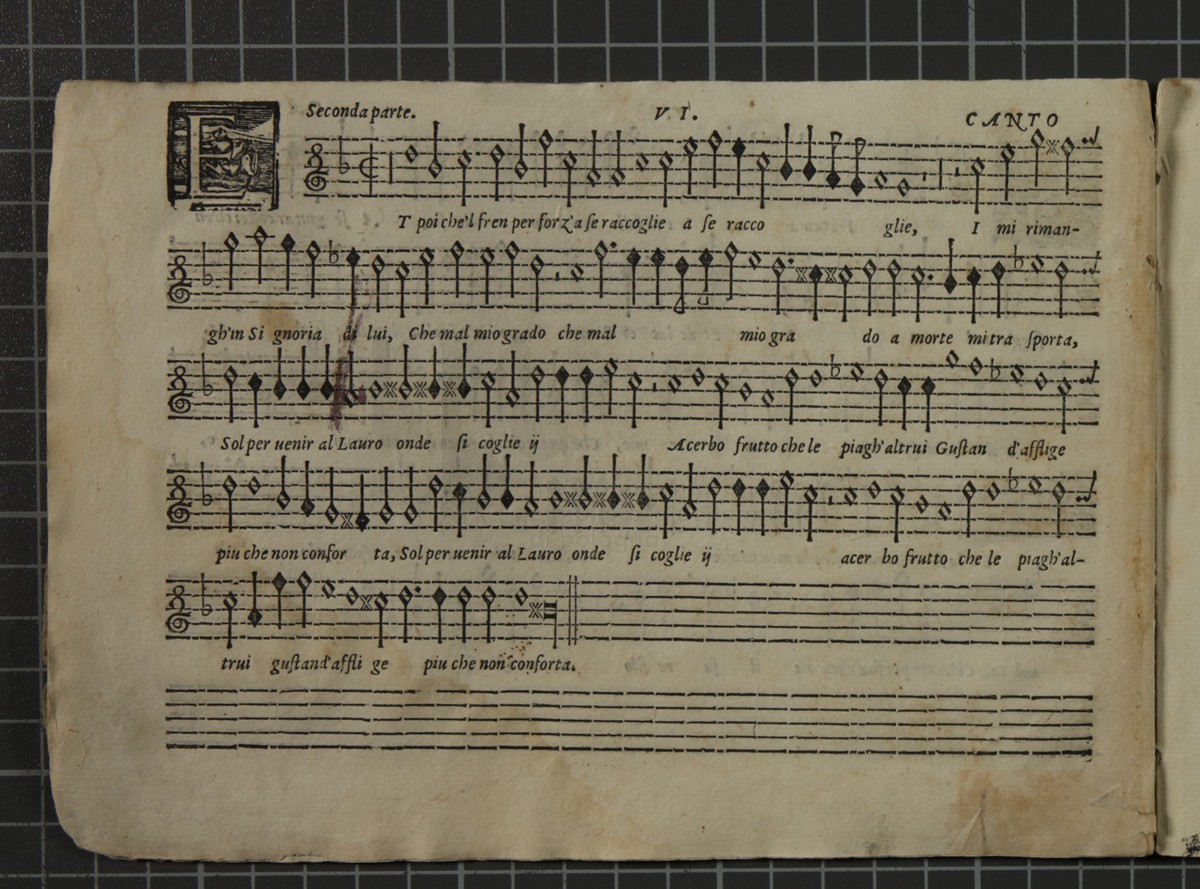 Seconda parte. V I. CANTO
ET poi che'l fren per forz'a se raccoglie a se racco glie, I mi riman-
gh'in Si gnoria di lui, Che mal mio grado che mal mio gra do a morte mi tra sporta,
Sol per uenir al Lauro onde si coglie ij Acerbo frutto che le piagh'altrui Gustan d'afflige
piu che non confor ta, Sol per uenir al Lauro onde si coglie ij acer bo frutto che le piagh'al-
trui gustand'affli ge piu che non conforta.